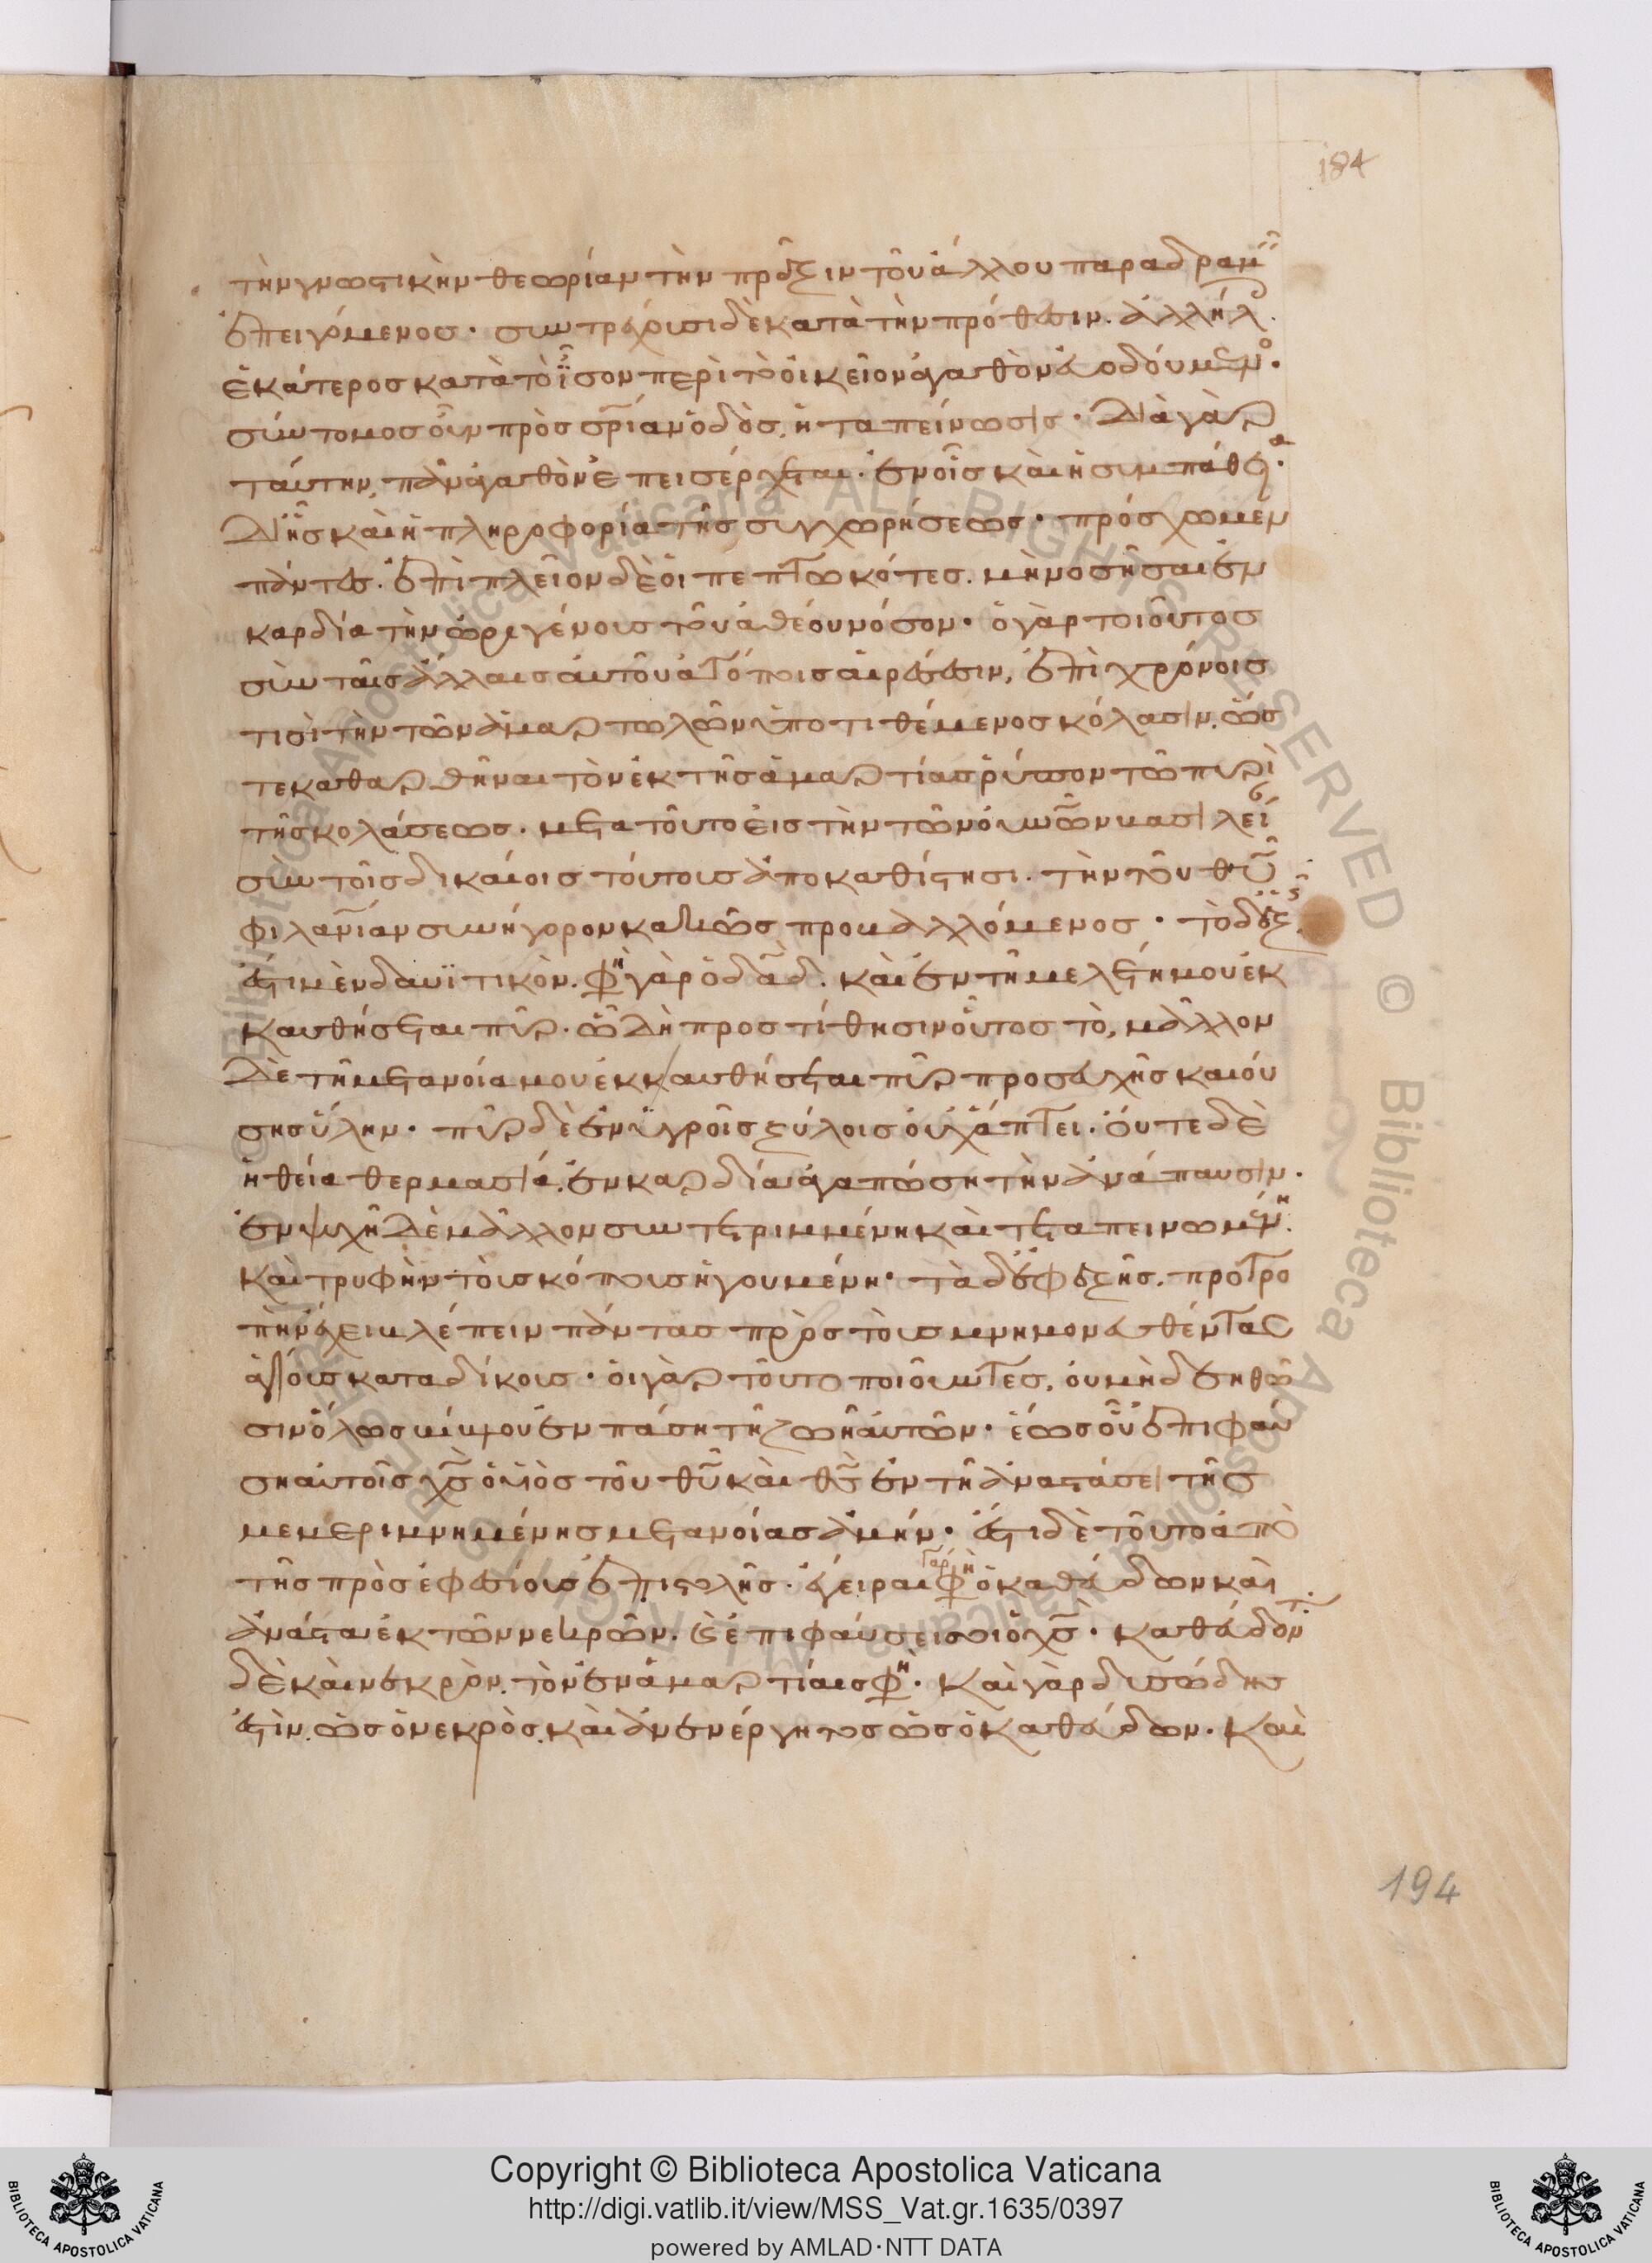 184
τὴν γνωστικὴν θεωρίαν τὴν πρᾶξιν τοῦ ἄλλου παραδραμεῖν
ἐπειγόμενος· συντρέχουσι δὲ κατὰ τὴν πρόθεσιν. ἀλλήλ
ἑκάτεροσ κατὰ τὸ ἴσον περὶ τὸ οἰκεῖον ἀγαθὸν εὐοδούμενο·
σύντομοσ οὖν πρὸσ σρίαν ὁδὸσ, ἡ ταπείνωσις· διὰ γὰρ
ταύτην, πᾶν ἀγαθὸν ἐπεισέρχεται. ἐν οἷσ καὶ ἡ συμπάθεια·
δι ἧσ καὶ ἡ πληροφορία τῆς συγχωρήσεωσ· πρόσχωμεν
πάντεσ. ἐπὶ πλεῖον δὲ οἱ πεπτωκότεσ. μὴ νοσῆσαι ἐν
καρδία τὴν ὠριγένουσ τοῦ ἀθέου νόσον· ὁ γὰρ τοιοῦτοσ
σὺν ταῖσ ἄλλαισ αὐτοῦ ἀτόποισ αἱρέσεσιν, ἐπὶ χρόνοισ
τισὶ τὴν τῶν ἁμαρτωλῶν ὑποτιθέμενοσ κόλασιν. ὥσ
τε καθαρθῆναι τὸν ἐκ τῆσ ἁμαρτίασ ῥύπον τῶ πυρὶ
τῆσ κολάσεωσ. μετὰ τοῦτο εἰσ τὴν τῶν οὐνῶν βασιλεί
σὺν τοῖσ δικαίοισ τούτουσ ἀποκαθίστησι. τὴν τοῦ θυ
φιλανίαν συνήγορον κακῶσ προβαλλόμενοσ· τὸ δὲ ἑξῆς
ἐστι μὲν δαυϊτικὸν. φη γὰρ ὁ δαδ. καὶ ἐν τῆ μελέτη μου ἐκ
καυθήσεται πῦρ. ὧ δὴ προστίθησιν οὗτοσ τὸ, μᾶλλον
δὲ τῆ μετανοία μου ἐκκαυθήσεται πῦρ προσευχῆσ καιού
σησ ὕλην· πῦρ δὲ ἐν ὑγροῖσ ξύλοισ οὐχ ἅπτει. οὔτε δὲ
ἡ θεία θερμασία. ἐν καρδία ἀγαπώση τὴν ἀνάπαυσιν.
ἐν ψυχῆ δὲ μᾶλλον συντετριμμένη καὶ τεταπεινωμένη.
καὶ τρυφὴν τοὺσ κόπουσ ἡγουμένη· τὰ δὲ ἐφεξῆσ. προτρο
πὴν ἔχει βλέπειν πάντασ πρὸσ τοὺσ μνημονευθέντασ
ἁγίουσ καταδίκουσ· οἱ γὰρ τοῦτο ποιοῦντεσ. οὐ μὴ δεηθῶ
σιν ὅλωσ βίβλου ἐν πάση τῆ ζωῆ αὐτῶν· ἕωσ οὗ ἐπιφαύ
ση αὐτοῖσ χσ ὁ υἱὸσ τοῦ θυ καὶ θσ ἐν τῆ ἀναστάσει τῆς
μεμεριμνημένησ μετανοίασ ἀμήν· ἔστι δὲ τοῦτο ἀπὸ
τῆσ πρὸσ ἐφεσίουσ ἐπιστολῆσ. ἔγειραι γάρ φη ὁ καθεύδων καὶ
ἀνάστα ἐκ τῶν νεκρῶν. καὶ ἐπιφαύσει σοι ὁ χσ· καθεύδοντ
δὲ καὶ νεκρὸν. τὸν ἐν ἁμαρτίαισ φη· καὶ γὰρ δυσώδησ
ἐστὶν. ὡσ ὁ νεκρὸσ. καὶ ἀνενέργητοσ ὡσ ὁ καθεύδων. καὶ
194
Copyright © Biblioteca Apostolica Vaticana
http://digi.vatlib.it/view/MSS_Vat.gr.1635/0397
powered by AMLAD·NTT DATA
BIBLIOTECA APOSTOLICA VATICANA
BIBLIOTECA APOSTOLICA VATICANA